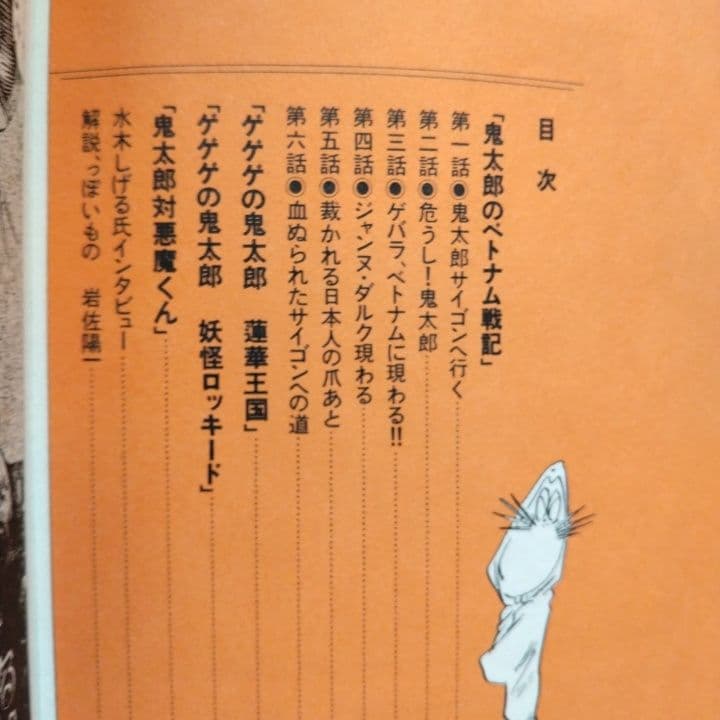 目次
「鬼太郎のベトナム戦記」
第一話◉鬼太郎サイゴンへ行く
第二話◉危うし！鬼太郎
第三話◉ゲバラ、ベトナムに現わる!!
第四話◉ジャンヌ・ダルク現わる
第五話◉裁かれる日本人の爪あと
第六話◉血ぬられたサイゴンへの道
「ゲゲゲの鬼太郎　蓮華王国」
「ゲゲゲの鬼太郎　妖怪ロッキード」
「鬼太郎対悪魔くん」
水木しげる氏インタビュー
解説、っぽいもの　岩佐陽一